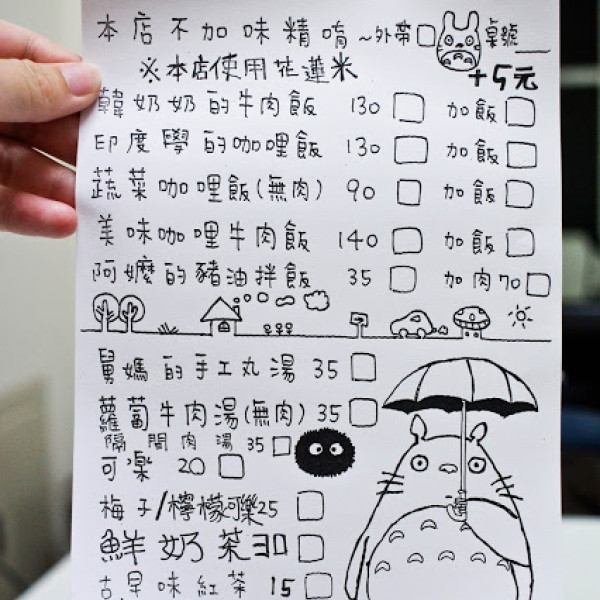 本店不加味精唷 ~外帶□ 桌號___
※本店使用花蓮米 +5元
韓奶奶的牛肉飯 130 □ 加飯□
印度學的咖哩飯 130 □ 加飯□
蔬菜咖哩飯(無肉) 90 □ 加飯□
美味咖哩牛肉飯 140 □ 加飯□
阿嬤的豬油拌飯 35 □ 加肉70□
舅媽的手工丸湯 35 □
蘿蔔牛肉湯(無肉) 35□
隔間肉湯 35□
可樂 20 □
梅子/檸檬可樂25 □
鮮奶茶30□
古早味紅茶 15□